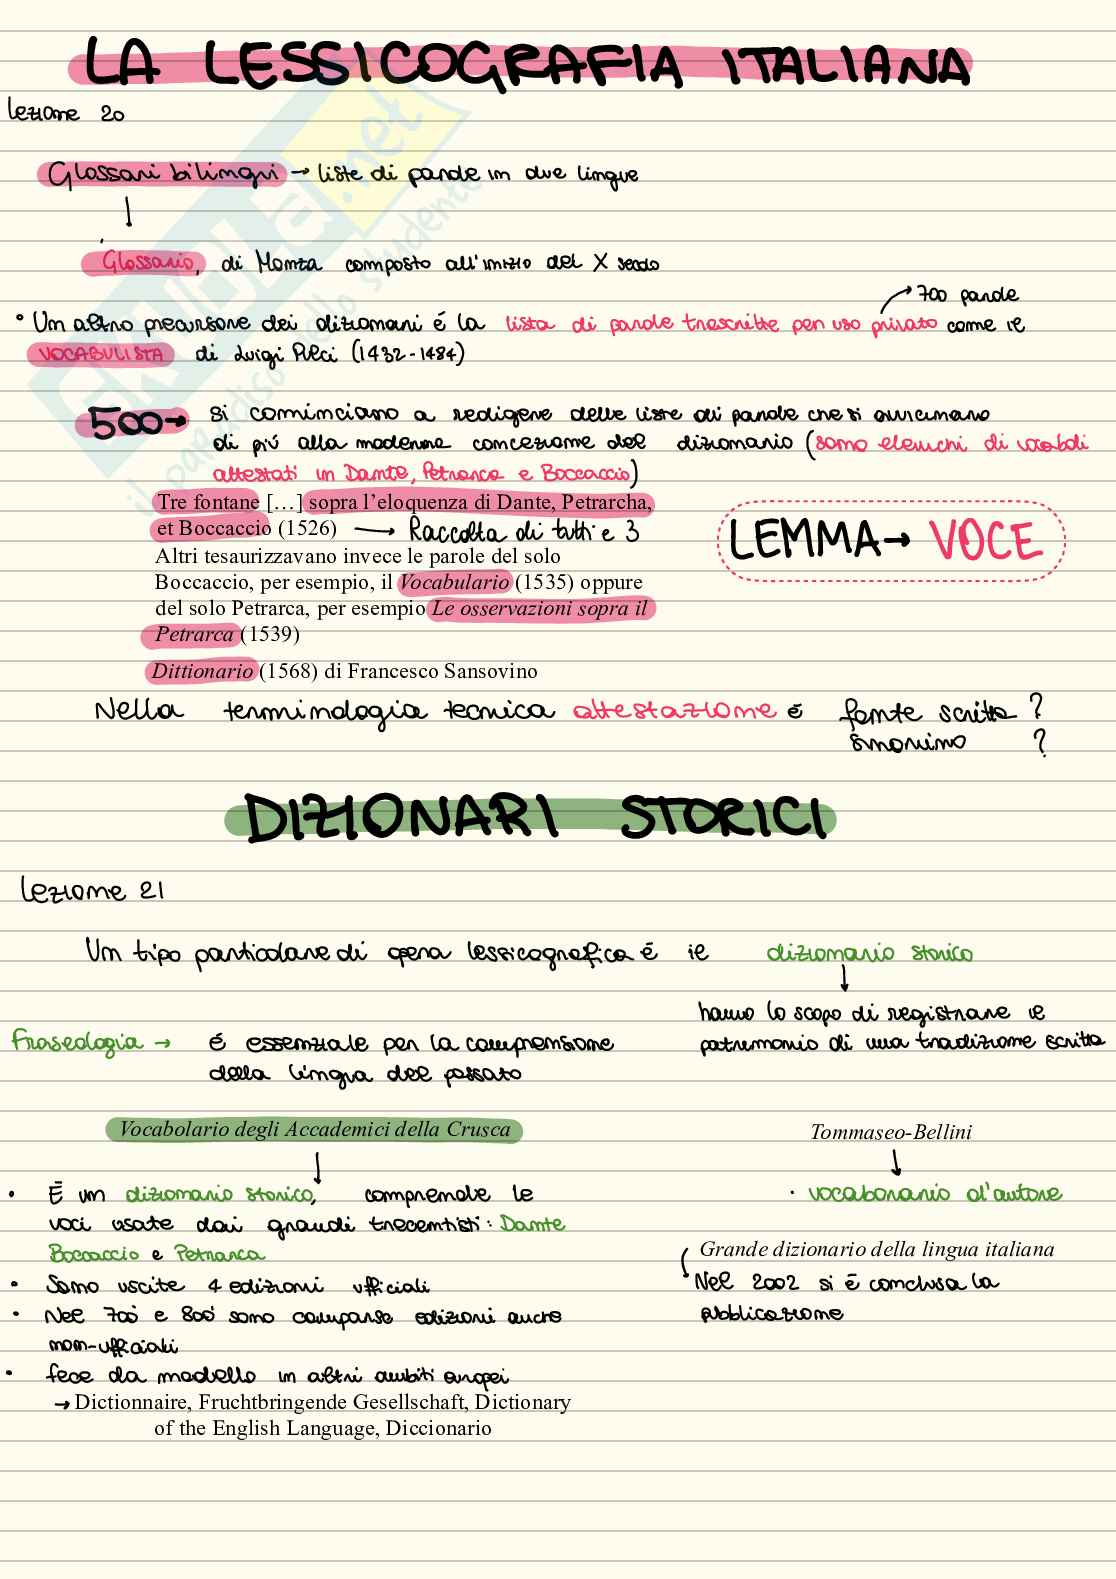 LA LESSICOGRAFIA ITALIANA
Lezione 20
Glossari bilingui → liste di parole in due lingue
Glossario, di Monza composto all'inizio del X secolo
→ 700 parole
• Un altro precursore dei dizionari é la lista di parole trascritte per uso privato come il
VOCABULISTA di Luigi Pulci (1432-1484)
500 → si cominciano a redigere delle liste di parole che si avvicinano
di piú alla moderna concezione del dizionario (sono elenchi di vocaboli
attestati in Dante, Petrarca e Boccaccio)
Tre fontane […] sopra l'eloquenza di Dante, Petrarcha,
et Boccaccio (1526) → Raccolta di tutti e 3
Altri tesaurizzavano invece le parole del solo
Boccaccio, per esempio, il Vocabulario (1535) oppure
del solo Petrarca, per esempio Le osservazioni sopra il
Petrarca (1539)
LEMMA → VOCE
Dittionario (1568) di Francesco Sansovino
Nella terminologia tecnica attestazione é fonte scritta ?
sinonimo ?
DIZIONARI STORICI
Lezione 21
Un tipo particolare di opera lessicografica é il dizionario storico
hanno lo scopo di registrare il
patrimonio di una tradizione scritta
Fraseologia → é essenziale per la comprensione
della lingua del passato
Vocabolario degli Accademici della Crusca
• É un dizionario storico, comprende le
voci usate dai grandi trecentisti: Dante
Boccaccio e Petrarca
• Sono uscite 4 edizioni ufficiali
• Nel 700 e 800 sono comparse edizioni anche
non-ufficiali
• fece da modello in altri ambiti europei
→ Dictionnaire, Fruchtbringende Gesellschaft, Dictionary
of the English Language, Diccionario
Tommaseo-Bellini
• vocabonario d'autore
Grande dizionario della lingua italiana
Nel 2002 si é conclusa la
pubblicazione
SKUOLA.net
il paradiso dello studente